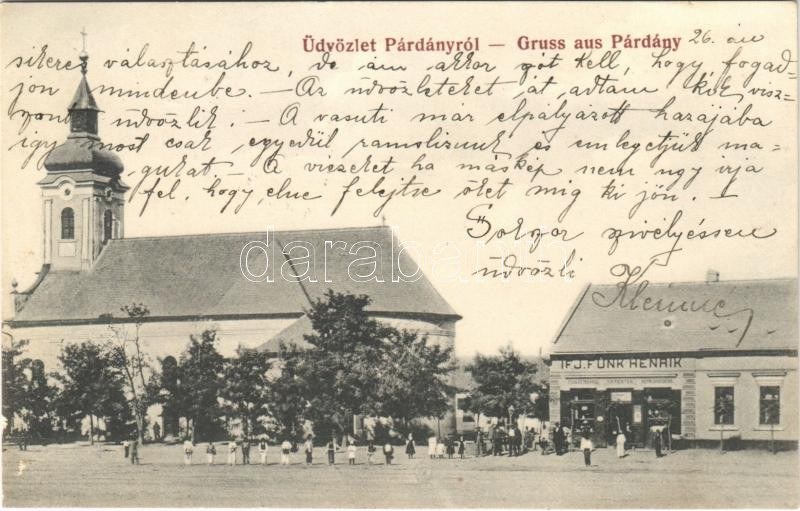 Üdvözlet Párdányról — Gruss aus Párdány
26. án
sikeres választásához, de ám akkor jót kell, hogy fogad-
jon mindenbe. — Az üdvözleteket át adtam kik visz-
zont üdvözlik. — A vasuti már elpályázott hazájába
igy most csak egyedül ramslizunk és emlegetjük ma-
gukat — A vicceket ha máskép nem ugy irja
fel, hogy elne felejtse őket mig ki jön. —
Sokszor szivélyessen
üdvözli
darabanth
IFJ. FUNK HENRIK